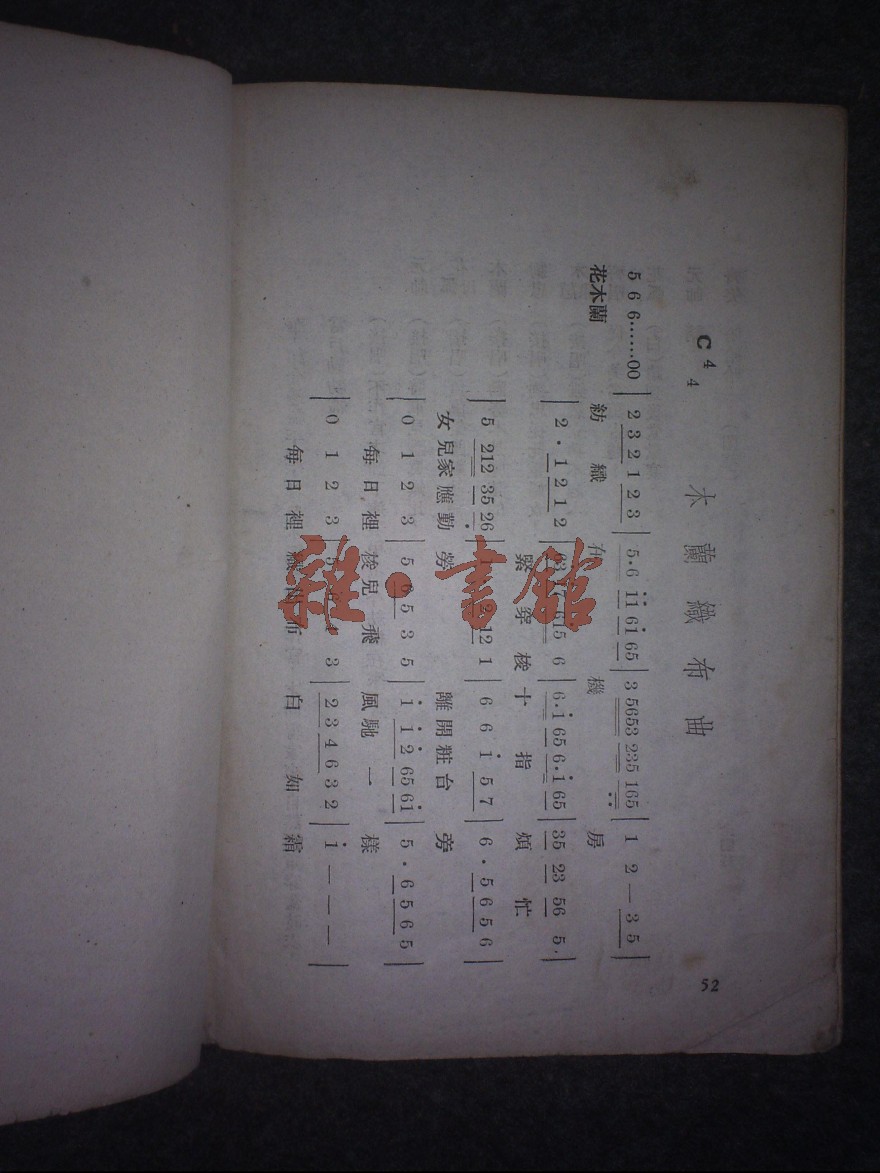 52
木蘭織布曲
C 4/4
5 6 6……00 | 2 3 2 1 2 3 | 5·6 i i 6 i 6 5 | 3 5653 235 165 | 1 2 — 3 5 |
花木蘭 紡 織 在 機 房
2 · 1 2 1 2 | 615 6 | 6·i 65 6·i 65 | 35 23 56 5· |
緊 穿 梭 十 指 煩 忙
5 212 35 26 | 12 1 | 6 6 i 5 7 | 6 · 5 6 5 6 |
女 兒 家 應 勤 勞 離 開 粧 台 旁
0 1 2 3 | 5 6 5 3 5 | i i 2 65 6i | 5 · 6 5 6 5 |
每 日 裡 梭 兒 飛 風 馳 一 樣
0 1 2 3 | 5 4 3 | 2 3 4 6 3 2 | i — — — |
每 日 裡 織 布 白 如 霜
書館